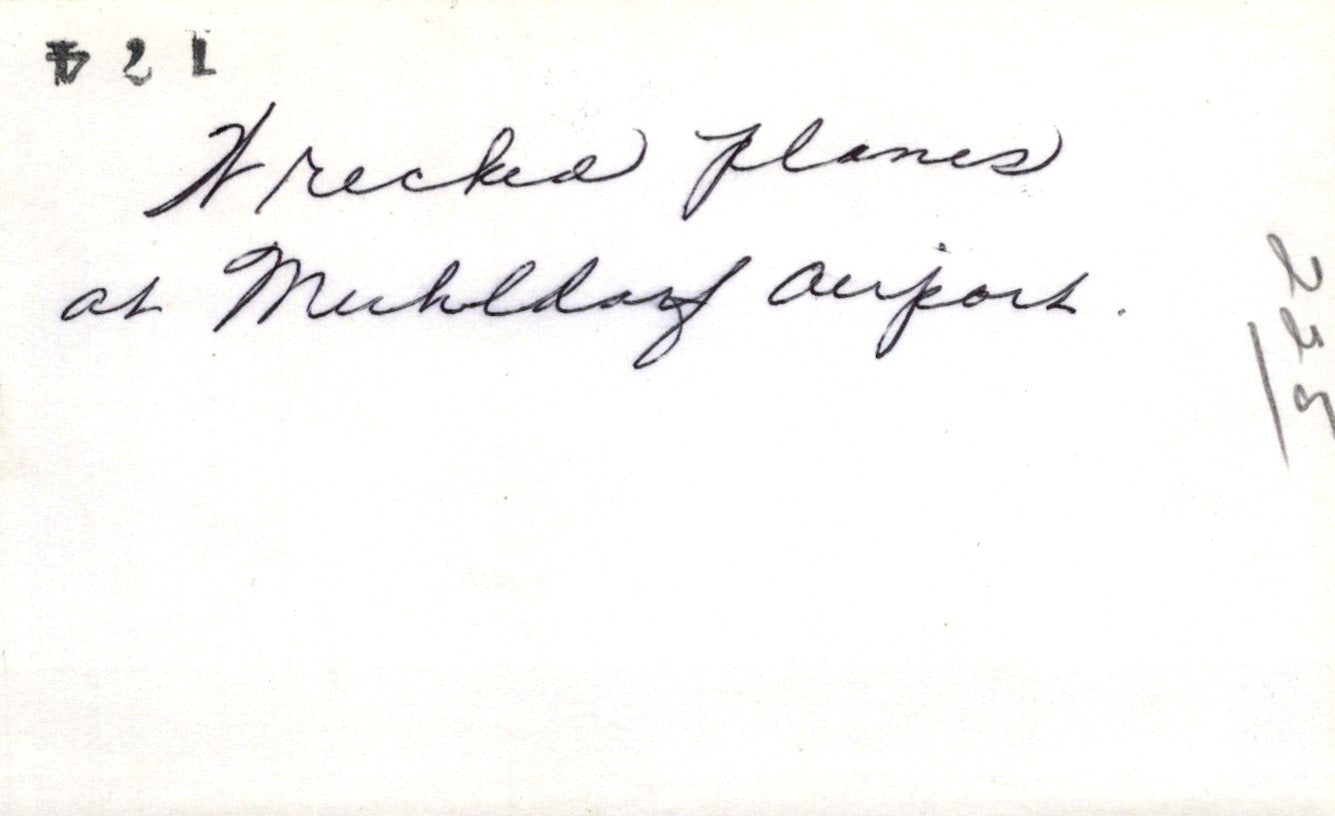 124
Wrecked planes
at Muhldorf airport.
225